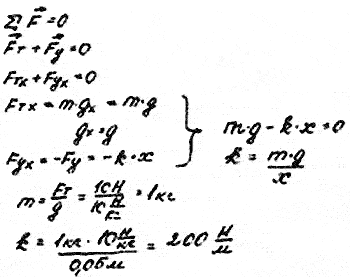 ∑ F⃗ = 0
F⃗т + F⃗у = 0
Fтx + Fуx = 0
Fтx = m·gx = m·g
gx = g
Fуx = -Fу = -k·x
m·g - k·x = 0
k = m·g / x
m = Fт / g = 10Н / 10 Н/кг = 1кг
k = 1кг · 10 Н/кг / 0,05м = 200 Н/м